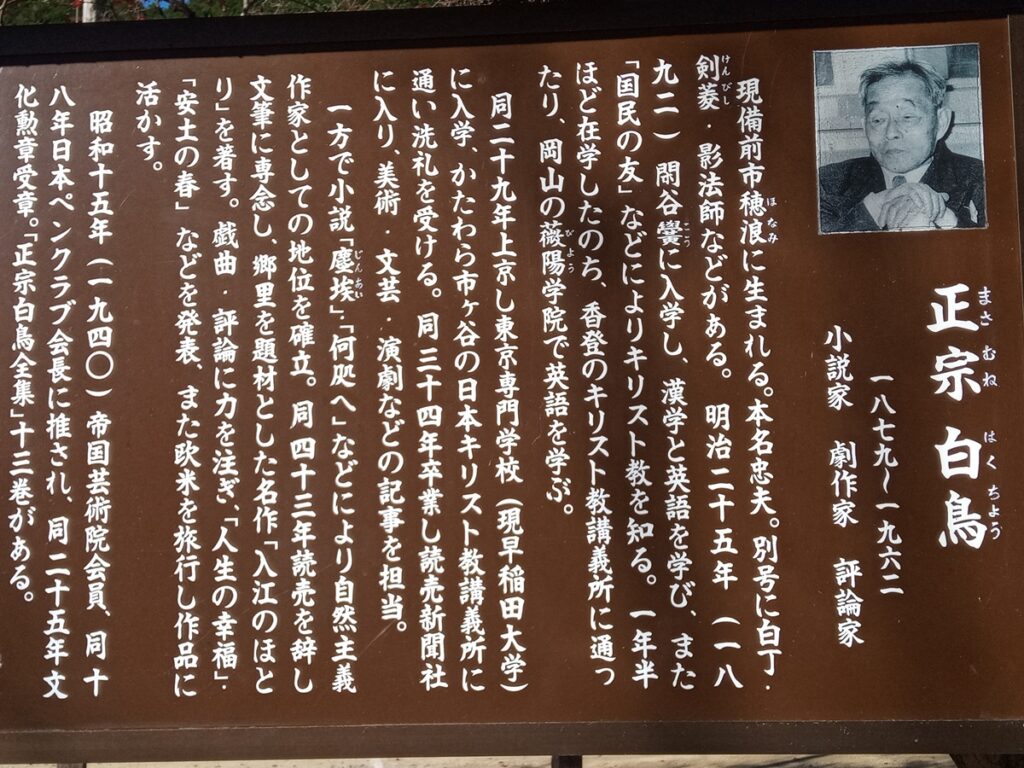 正宗 白鳥
まさむね はくちょう
一八七九〜一九六二
小説家 劇作家 評論家
現備前市穂浪に生まれる。本名忠夫。別号に白丁・
ほなみ
剣菱・影法師などがある。 明治二十五年 (一八
けんびし
九二) 閑谷黌に入学し、漢学と英語を学び、また
こう
「国民の友」などによりキリスト教を知る。一年半
ほど在学したのち、香登のキリスト教講義所に通っ
たり、岡山の薇陽学院で英語を学ぶ。
びよう
同二十九年上京し東京専門学校(現早稲田大学)
に入学、かたわら市ヶ谷の日本キリスト教講義所に
通い洗礼を受ける。同三十四年卒業し読売新聞社
に入り、美術・文芸・演劇などの記事を担当。
一方で小説「塵埃」・「何処へ」などにより自然主義
じんあい
作家としての地位を確立。同四十三年読売を辞し
文筆に専念し、郷里を題材とした名作「入江のほと
り」を著す。戯曲・評論に力を注ぎ、「人生の幸福」・
「安土の春」などを発表、また欧米を旅行し作品に
活かす。
昭和十五年(一九四〇)帝国芸術院会員、同十
八年日本ペンクラブ会長に推され、同二十五年文
化勲章受章。「正宗白鳥全集」十三巻がある。